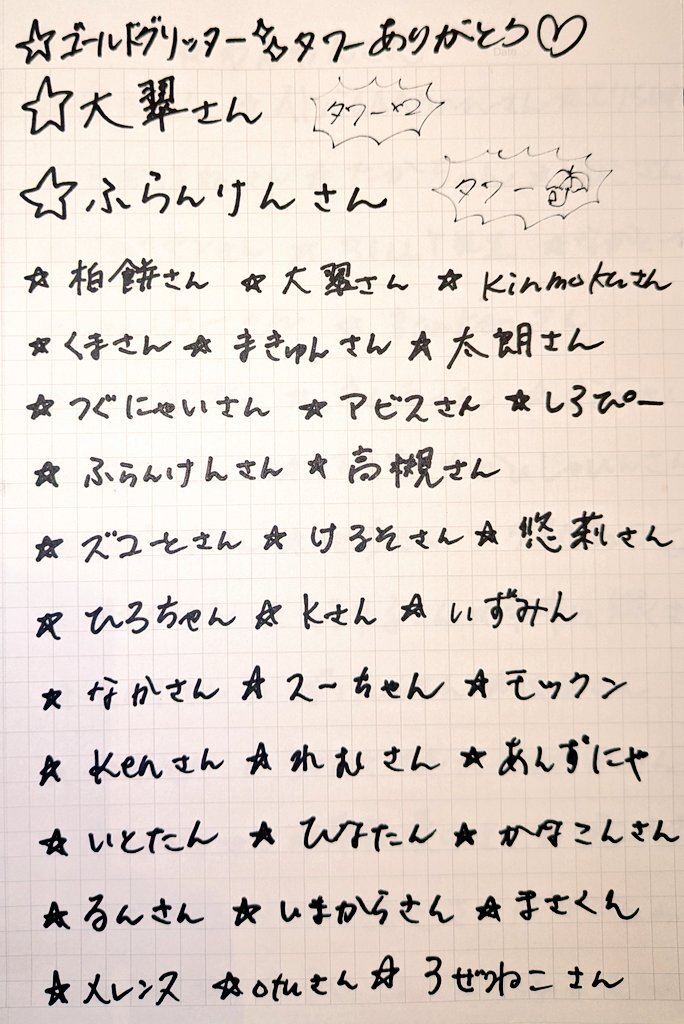 ☆ゴールドグリッター✨タワーありがとう♡
☆大翠さん タワー×2
☆ふらんけんさん タワー
☆柏餅さん ☆大翠さん ☆kinmokuさん
☆くまさん ☆まきゅんさん ☆太朗さん
☆つぐにゃいさん ☆アビスさん ☆しろぴー
☆ふらんけんさん ☆高槻さん
☆ズコーとさん ☆けるそさん ☆悠莉さん
☆ひろちゃん ☆Kさん ☆いずみん
☆なかさん ☆スーちゃん ☆モックン
☆Kenさん ☆れむさん ☆あんずにゃ
☆いとたん ☆ひなたん ☆かなこんさん
☆るんさん ☆いまからさん ☆まさくん
☆メレンヌ ☆otuさん ☆ろぜつねこさん